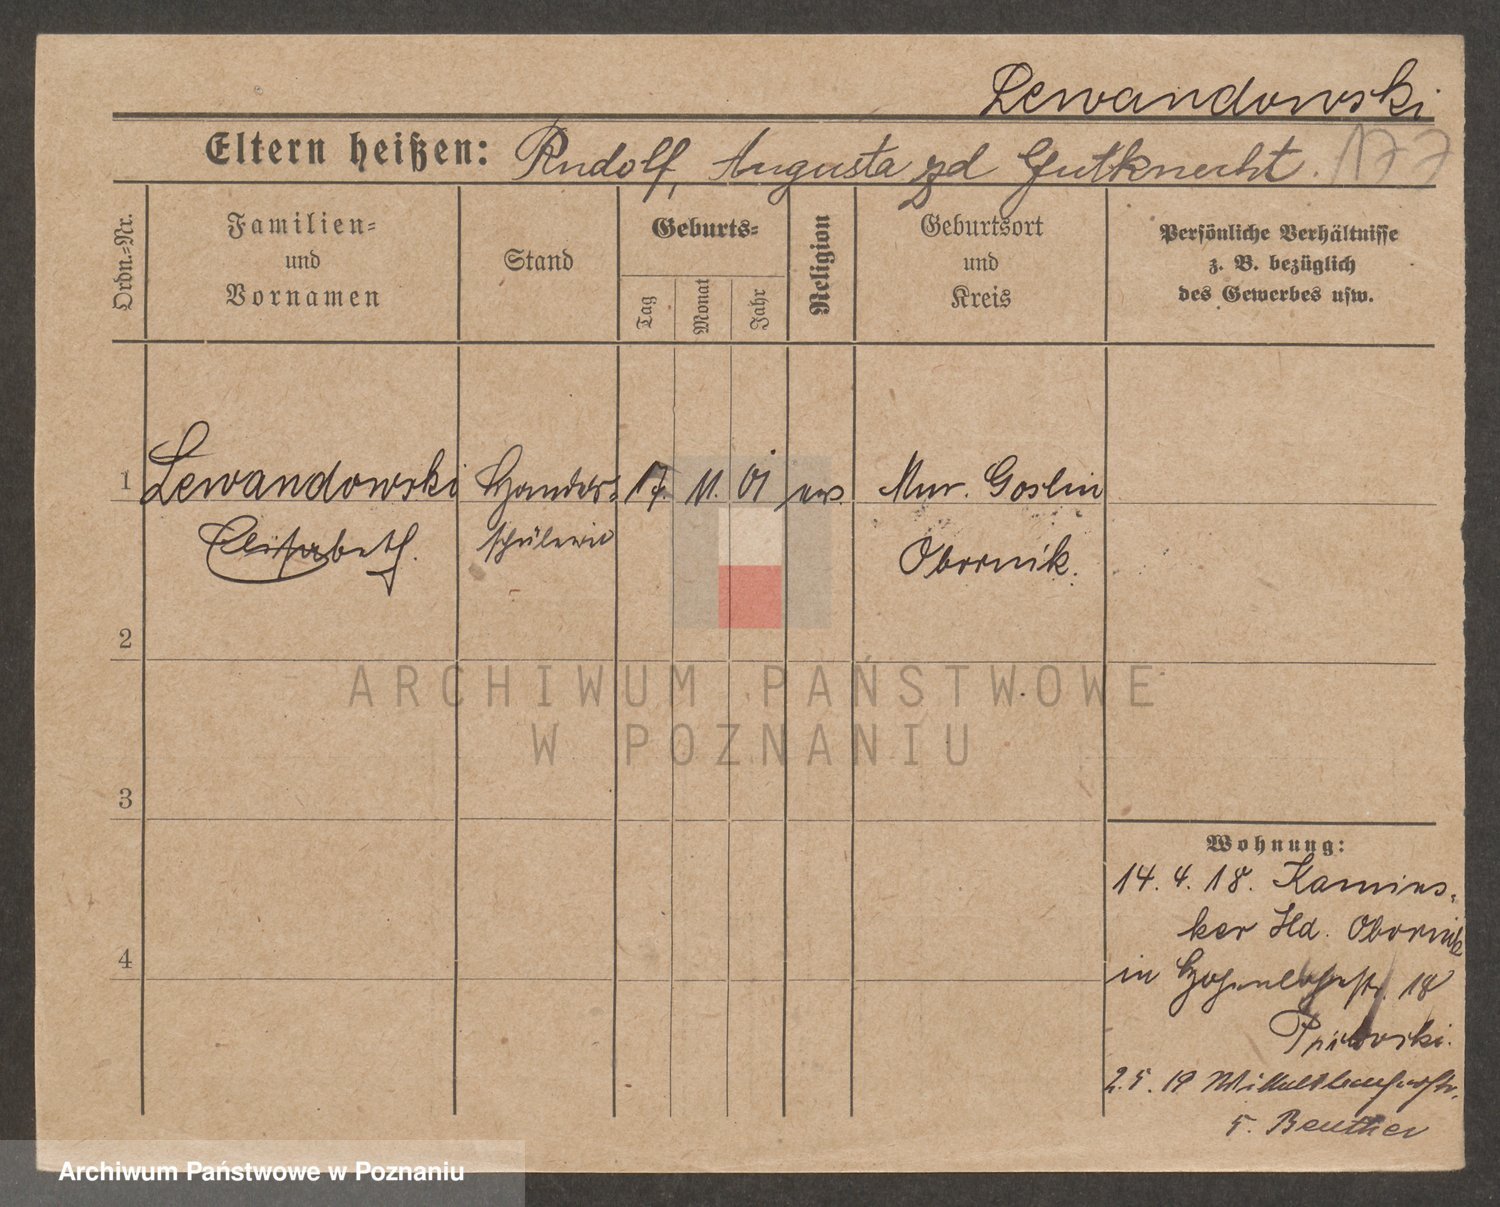 Lewandowski
Eltern heißen: Rudolf, Augusta gd Gutknecht. 177
Ordn.-Nr.
Familien-
und
Vornamen
Stand
Geburts-
Tag
Monat
Jahr
Religion
Geburtsort
und
Kreis
Persönliche Verhältnisse
z. B. bezüglich
des Gewerbes usw.
1 Lewandowski Handels- 17. 11. 01 ev. Mur. Goslin
Elisabeth. schülerin Obornik.
2
3
4
ARCHIWUM PAŃSTWOWE
W POZNANIU
Wohnung:
14. 4. 18. Kamins-
ker Hld. Obornik
in Hohenlohestr. 18
2. 5. 19
5. Beuther
Archiwum Państwowe w Poznaniu